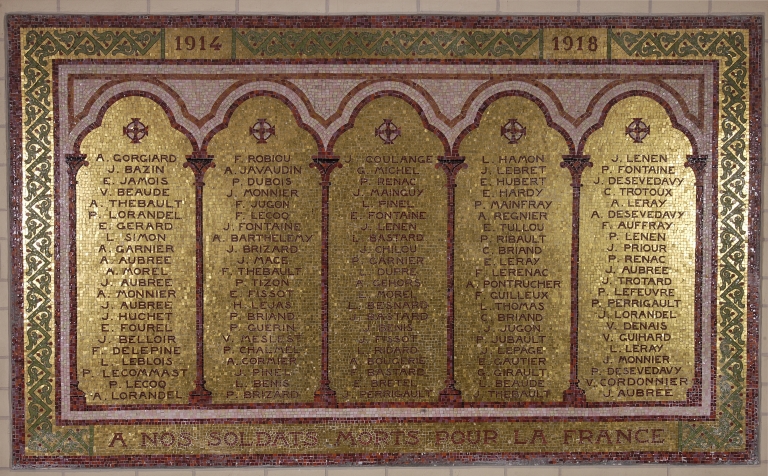 1914 1918
A. GORGIARD
J. BAZIN
E. JAMOIS
V. BEAUDE
A. THEBAULT
P. LORANDEL
E. GERARD
L. SIMON
A. GARNIER
A. AUBREE
A. MOREL
J. AUBREE
A. MONNIER
AUBREE
J. HUCHET
E. FOUREL
J. BELLOIR
F. DELEPINE
L. LEBLOIS
P. LECOMMAST
P. LECOQ
A. LORANDEL
F. ROBIOU
A. JAVAUDIN
P. DUBOIS
J. MONNIER
F. JUGON
F. LECOQ
J. FONTAINE
A. BARTHELEMY
J. BRIZARD
J. MACE
F. THEBAULT
P. TIZON
E. FISSOT
H. LEJAS
P. BRIAND
P. GUERIN
V. MESLEST
P. CHALMEL
A. CORMIER
J. PINEL
L. BENIS
P. BRIZARD
J. COULANGE
G. MICHEL
P. RENAC
J. MAINGUY
L. PINEL
E. FONTAINE
J. LENEN
L. BASTARD
J. CHILOU
P. GARNIER
L. DUFRE
A. GEHORS
MOREL
L. BESNARD
J. BASTARD
J. BENIS
J. FISSOT
L. RICARD
A. BOUGERIE
J. BASTARD
E. BRETEL
J. PERRIGAULT
L. HAMON
J. LEBRET
E. HUBERT
E. HARDY
P. MAINFRAY
A. REGNIER
E. TULLOU
P. RIBAULT
C. BRIAND
E. LERAY
F. LERENAC
A. PONTRUCHER
F. GUILLEUX
L. THOMAS
C. BRIAND
C. JUGON
P. JUBAULT
J. LEPAGE
E. GAUTIER
G. GIRAULT
L. BEAUDE
THEBAULT
J. LENEN
P. FONTAINE
J. DESEVEDAVY
C. TROTOUX
A. LERAY
A. DESEVEDAVY
F. AUFFRAY
P. LENEN
J. PRIOUR
P. RENAC
J. AUBREE
J. TROTARD
P. LEFEUVRE
P. PERRIGAULT
J. LORANDEL
V. DENAIS
V. GUIHARD
L. LERAY
J. MONNIER
P. DESEVEDAVY
V. CORDONNIER
J. AUBREE
A NOS SOLDATS MORTS POUR LA FRANCE